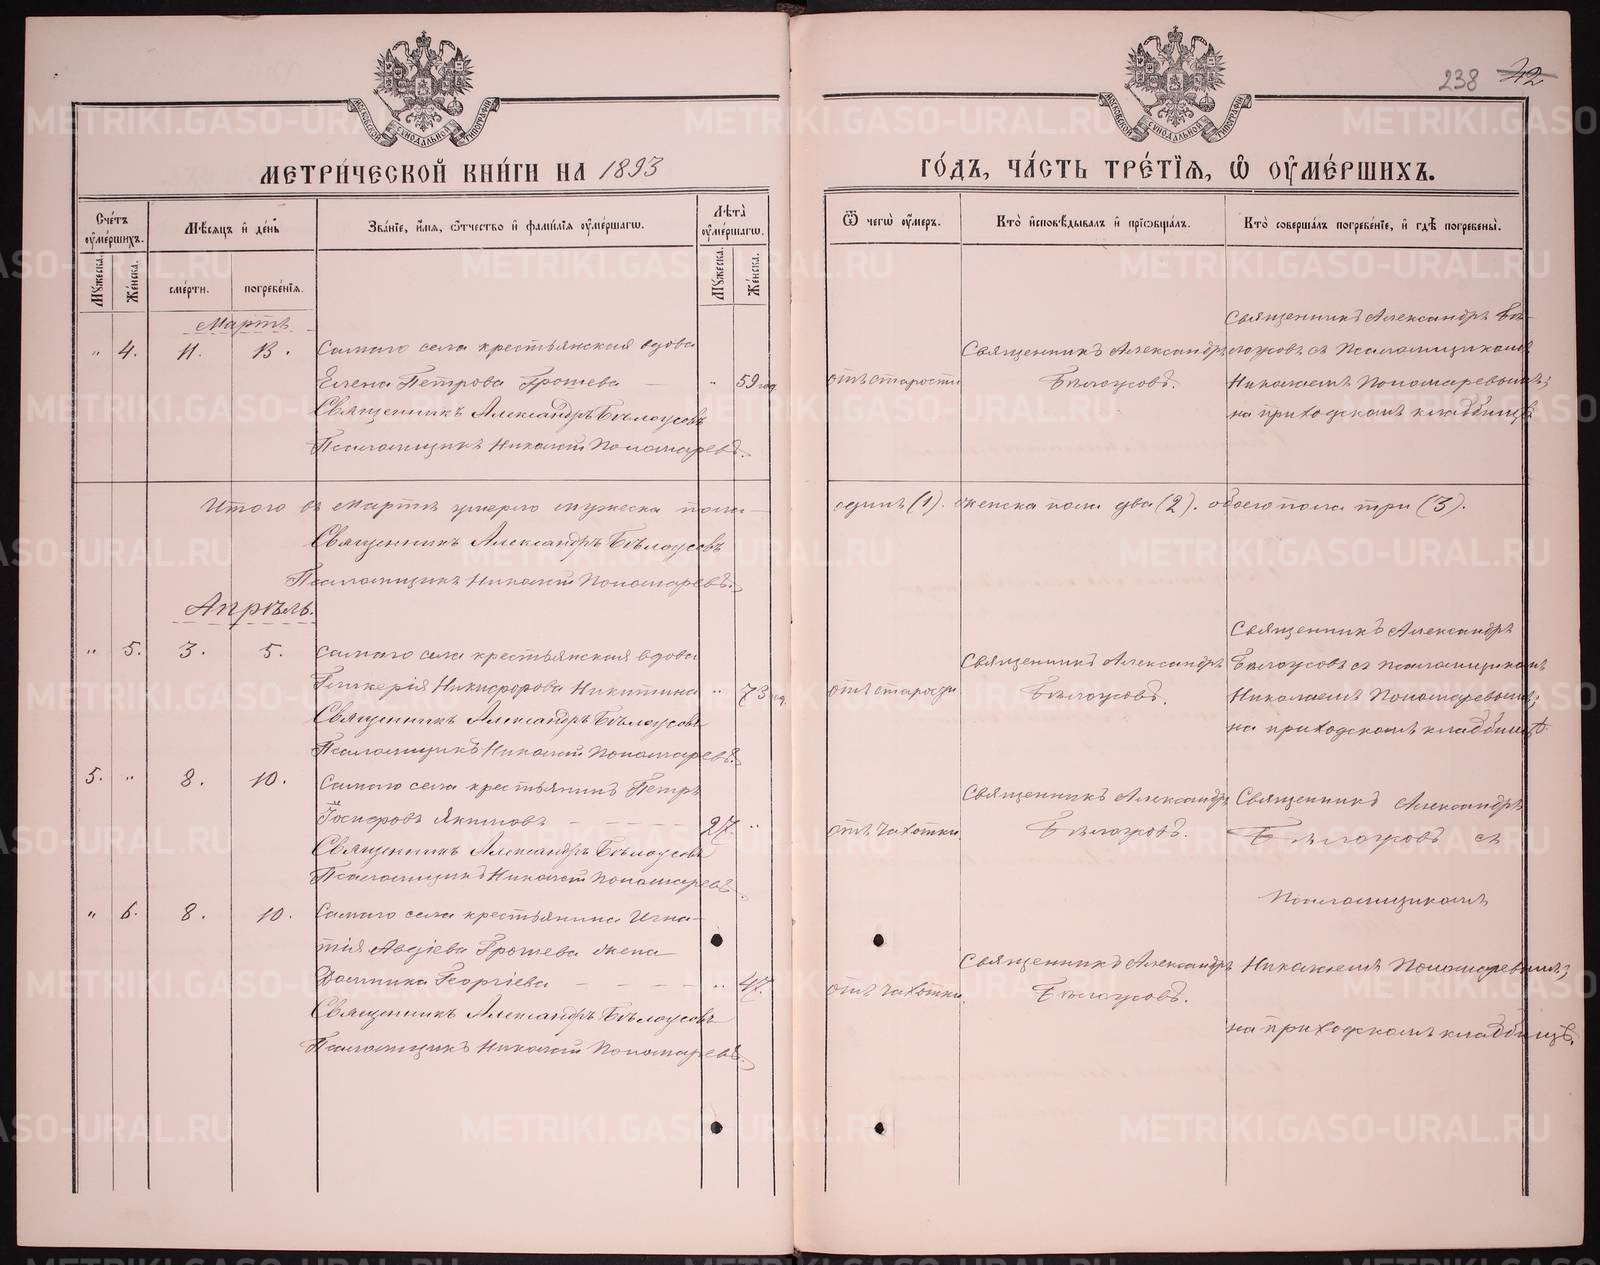 238 42
МОСКОВСКОЙ СѴНОДАЛЬНОЙ ТИПОГРАФІИ
МОСКОВСКОЙ СѴНОДАЛЬНОЙ ТИПОГРАФІИ
МЕТРИ́ЧЕСКОЙ КНИ́ГИ НА 1893
ГО́ДЪ, ЧА́СТЬ ТРЕ́ТІЯ, Ѽ ОУ҆МЕ́РШИХЪ.
Сче́тъ оу҆ме́ршихъ.
Мꙋ́жеска.
Же́нска.
Мѣ́сяцъ и҆ де́нь
сме́рти.
погребе́нїя.
Зва́нїе, и҆́мя, ѻ҆́тчество и҆ фами́лїя оу҆ме́ршагѡ.
Лѣ́та оу҆ме́ршагѡ.
Мꙋ́жеска.
Же́нска.
Ѿ чегѡ̀ оу҆́меръ.
Кто̀ и҆сповѣ́дывалъ и҆ прїѡбща́лъ.
Кто̀ соверша́лъ погребе́нїе, и҆ гдѣ̀ погребены̀.
Мартъ
" 4. 11. 13. Самаго села крестьянская вдова
Елена Петрова Грошева — " 59 год.
Священникъ Александръ Бѣлоусовъ
Псаломщикъ Николай Пономаревъ.
отъ старости
Священникъ Александръ
Бѣлоусовъ.
Священникъ Александръ Бѣ-
лоусовъ съ Псаломщикомъ
Николаемъ Пономаревымъ;
на приходскомъ кладбищѣ
Итого въ Мартѣ умерло мужеска пола —
одинъ (1). женска пола два (2). обоего пола три (3).
Священникъ Александръ Бѣлоусовъ
Псаломщикъ Николай Пономаревъ.
Апрѣль.
" 5. 3. 5. Самаго села крестьянская вдова
Гликерія Никифорова Никитина " 73
Священникъ Александръ Бѣлоусовъ
Псаломщикъ Николай Пономаревъ.
отъ старости
Священникъ Александръ
Бѣлоусовъ.
Священникъ Александръ
Бѣлоусовъ съ псаломщикомъ
Николаемъ Пономаревымъ;
на приходскомъ кладбищѣ
5. " 8. 10. Самаго села крестьянинъ Петръ
Якимовъ — — — — 27. "
Священникъ Александръ Бѣлоусовъ
Псаломщикъ Николай Пономаревъ
отъ чахотки
Священникъ Александръ
Бѣлоусовъ.
Священникъ Александръ
Бѣлоусовъ съ
Псаломщикомъ
" 6. 8. 10. Самаго села крестьянина Игна-
тія Авдіева Грошева жена
Домника Георгіева — — — — " 47.
Священникъ Александръ Бѣлоусовъ
Псаломщикъ Николай Пономаревъ.
отъ чахотки
Священникъ Александръ
Бѣлоусовъ.
Николаемъ Пономаревымъ;
на приходскомъ кладбищѣ.
METRIKI.GASO-URAL.RU